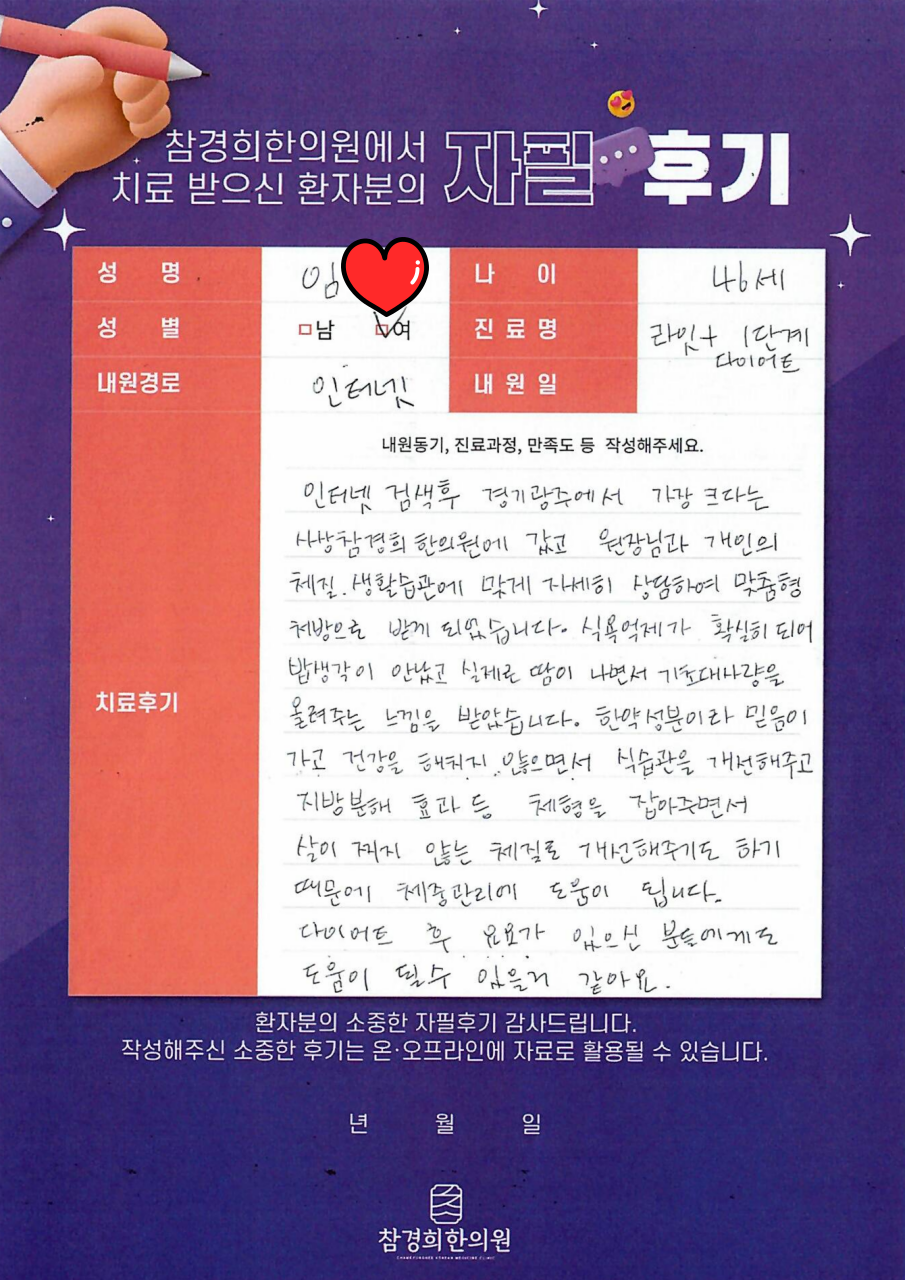 참경희한의원에서
치료 받으신 환자분의 자필 후기
성 명 임 나 이 46세
성 별 □남 □여 진 료 명 라인+ 1단계
다이어트
내원경로 인터넷 내 원 일
내원동기, 진료과정, 만족도 등 작성해주세요.
인터넷 검색후 경기광주에서 가장 크다는
사상참경희 한의원에 갔고 원장님과 개인의
체질.생활습관에 맞게 자세히 상담하여 맞춤형
처방으로 받게 되었습니다. 식욕억제가 확실히 되어
밥생각이 안났고 실제로 땀이 나면서 기초대사량을
올려주는 느낌을 받았습니다. 한약성분이라 믿음이
치료후기
가고 건강을 해치지 않으면서 식습관을 개선해주고
지방분해 효과 등 체형을 잡아주면서
살이 찌지 않는 체질로 개선해주기도 하기
때문에 체중관리에 도움이 됩니다.
다이어트 후 요요가 있으신 분들에게도
도움이 될수 있을거 같아요.
환자분의 소중한 자필후기 감사드립니다.
작성해주신 소중한 후기는 온·오프라인에 자료로 활용될 수 있습니다.
년 월 일
참경희한의원